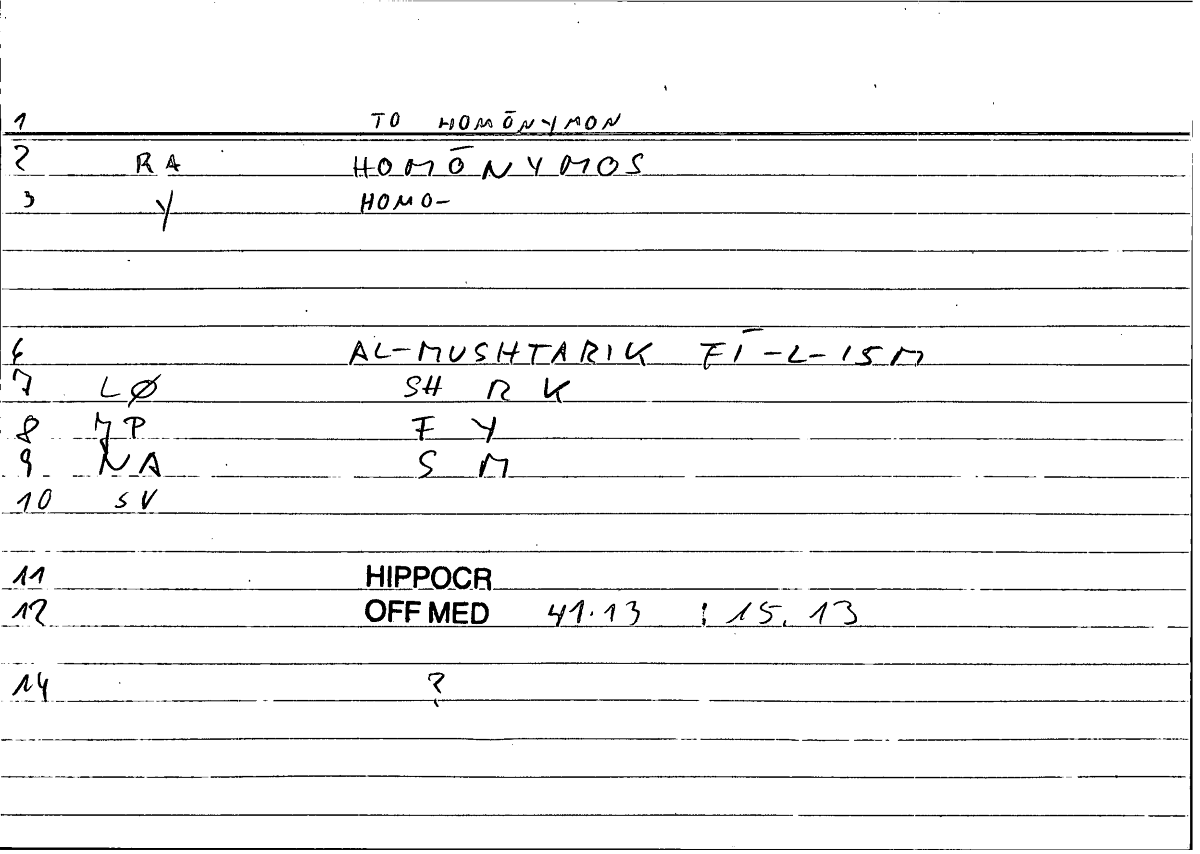 1 TO HOMŌNYMON
2 RA HOMŌNYMOS
3 Y HOMO-
6 AL-MUSHTARIK FĪ-L-ISM
7 LØ SH R K
8 MP F Y
9 NA S M
10 SV
11 HIPPOCR
12 OFF MED 41.13 : 15.13
14 ?